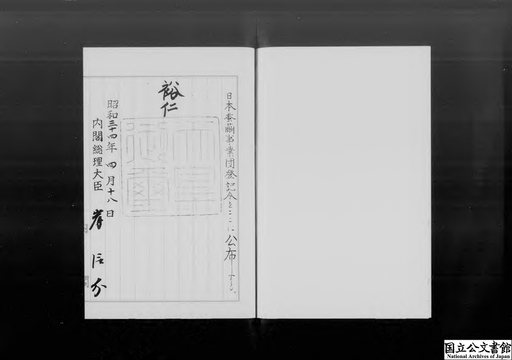 日本蚕繭事業団登記令をここに公布する。
裕仁
天皇御璽
昭和三十四年四月十八日
内閣総理大臣 岸信介
国立公文書館
National Archives of Japan